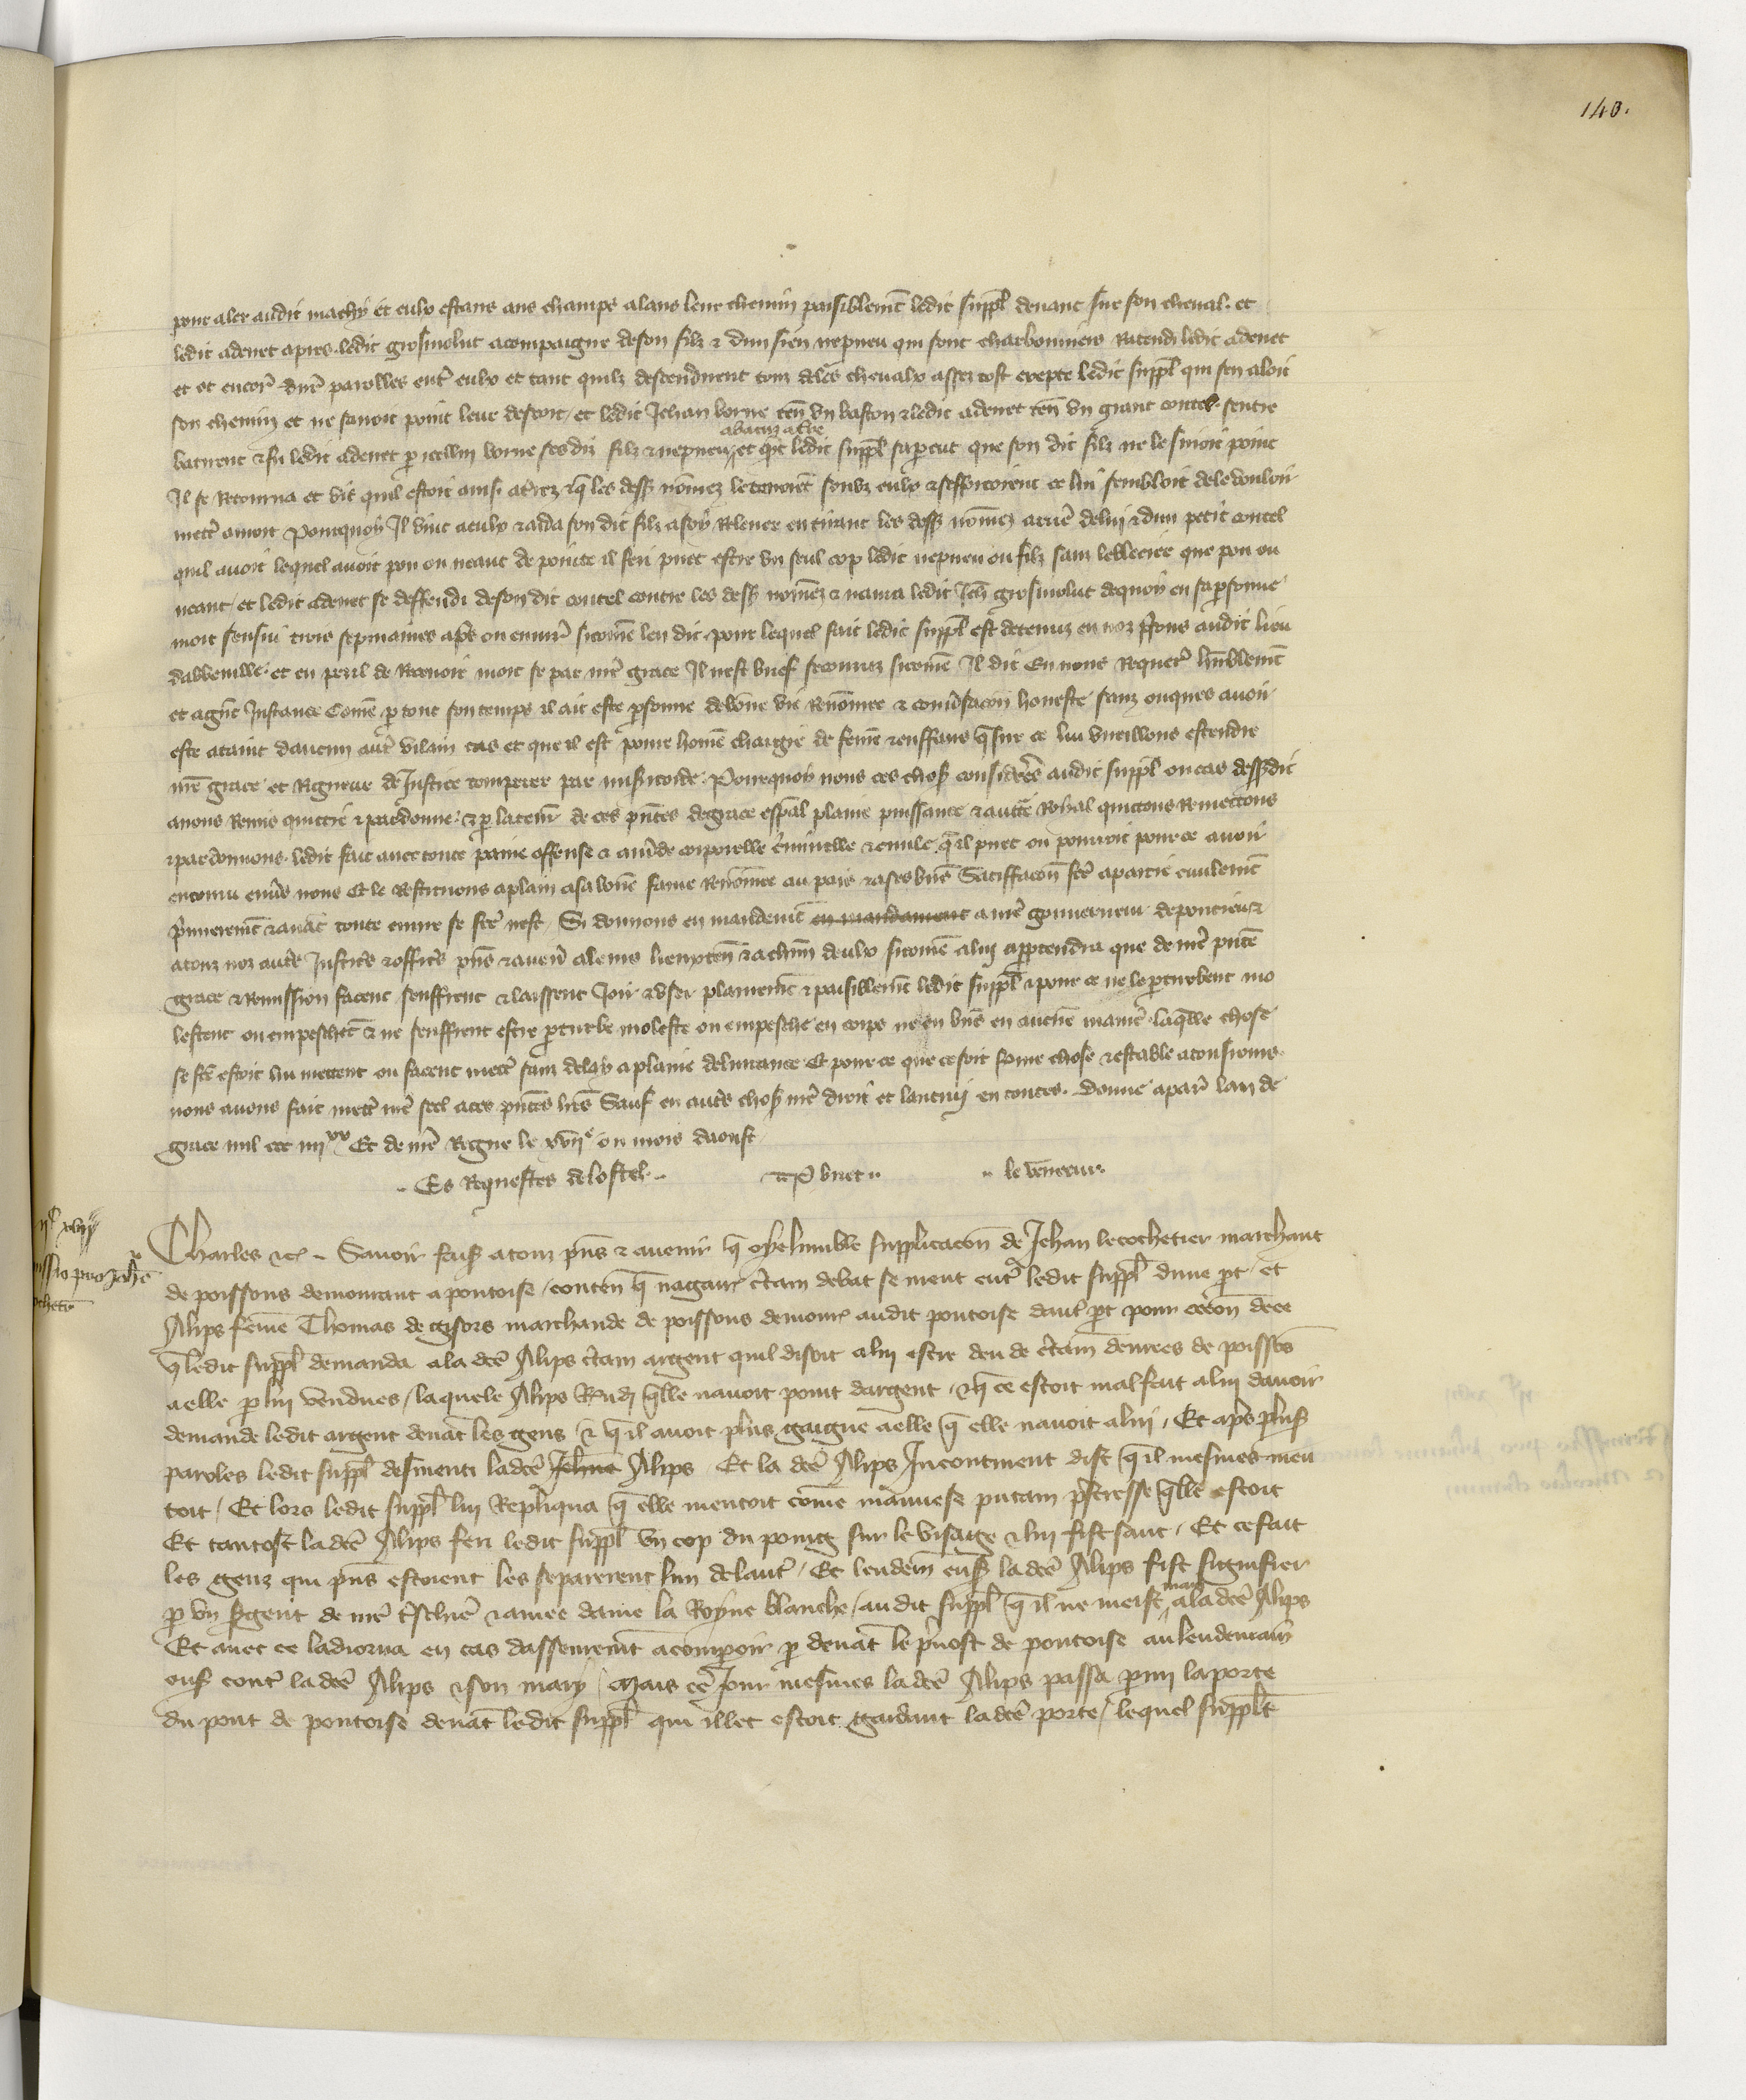 140.
pour aler audit machy et eulx estans aus champs alans leur chemin paisiblemt ledit suppl devant sur son cheval. et
ledit adenet apres. ledit grosmolut acompaigne de son filz & dun sien nepveu qui sont charbonniers Ratendi ledit adenet
et ot encor dures parolles entr eulx et tant quilz descendirent touz de leurs chevalx assez tost excepte ledit suppl qui sen aloit
son chemin et ne savoit point leur descort / et ledit Jehan borne ten un baston & ledit adenet ten un grant coutel. sentre
abatuz a tre
batirent & fu ledit adenet p icellui borne ses diz filz & nepveu et qnt ledit suppl saperceut que son dit filz ne le suioit point
Il se Retourna et vit quil estoit ainsi atirez & q les dess nommez le tenoient souz eulx & sefforcoient ce lui sembloit de le vouloir
mettr a mort Pourquoy Il vint a eulx & aida son dit filz a soy Relever en tirant les dess nommez arrier de lui & dun petit coutel
quil avoit lequel avoit pou ou neant de pointe il feri puet estre un seul cop ledit nepveu ou filz sanz le blecier que pou ou
neant / et ledit adenet se deffendi de son dit coutel contre les dess nommez & navra ledit Jeh grosmolut dequoy en sa personne
mort sensui trois sepmaines apres ou environ sicomme len dit. pour lequel fait ledit suppl est detenuz en noz prisons audit lieu
dabbeville. et en peril de Recevoir mort se par nre grace Il nest brief secouruz sicomme Il dit En nous Requerant humblemt
et a grt Instance Comme p tout son temps il ait este psonne de bonne vie Renommee & conversacon honeste sanz onques avoir
este ataint daucun autr vilain cas et que il est povre homme chargie de femme & enffans q sur ce lui vueillons estendre
nre grace et Rigueur de Justice temperer par misericorde. Pourquoy nous ces choses considerees audit suppl ou cas dessusdit
avons Remis quictie & pardonne. & p la teneur de ces pntes de grace espal plaine puissance & auttre Royal quictons Remettons
& pardonnons. ledit fait avec toute paine offense & amde corporelle criminelle & civile q il puet ou pourroit pour ce avoir
encouru envers nous Et le Restituons a plain a sa bonne fame Renommee au pais & a ses biens Satiffacon fte a partie civilemt
primeremt & avat toute euvre se fte nest / Si donnons en mandemt en mandement a nre gouverneur de pontieu &
a touz noz autrs Justics & offics pns & avenir a leurs lieuxten & a chun deulx sicomme a lui appartendra que de nre pnte
grace & Remission facent seuffrent & laissent Joir & user plainemt & paisiblemt ledit suppl & pour ce ne le perturbent mo
lestent ou empeschent & ne seuffrent estre perturbe moleste ou empesche en corps ne en biens en aucune manire. laquelle chose
se fte estoit lui mettent ou facent mettr sanz delay a plaine delivrance Et pour ce que ce soit ferme chose & estable a tousjours.
nous avons fait mettr nre scel a ces pntes lres Sauf en autrs choses nre droit et lautruy en toutes. Donne a paris lan de
grace mil ccc iiii xx Et de nre Regne le xvii e ou mois daoust
Es Requestes de lostel. T P bruet le veneeur.
Charles &c. Savoir faiss a touz pns & avenir q oye lumble supplicacon de Jehan lecochetier marchant
de poissons demourant a pontoise / conten q nagaires certain debat se meut entr ledit suppl dune pt / et
Alips femme Thomas de Gisors marchande de poissons demour audit pontoise dautr pt pour occon de ce
q ledit suppl demanda a la dce Alips certain argent quil disoit a lui estre deu de certain denrees de poissons
a elle p lui vendues / laquele Alips Rndi q lle navoit point dargent / & q ce estoit mal fait a lui davoir
demande ledit argent devat les gens / & q il avoit plus gaigne a elle q elle navoit a lui / Et aprs plus
paroles ledit suppl desmenti ladce Jehne Alips Et la dce Alips Incontinent dist q il mesmes men
toit / Et lors ledit suppl lui Repliqua q elle mentoit comme mauvese putain prstresse q lle estoit
Et tantost ladce Alips feri ledit suppl un cop du poing sur le visaige & lui fist sanc / Et ce fait
les genz qui pns estoient les separerent lun de lautr / Et lendem ens la dce Alips fist signifier
p un sgent de nre treschiere & amee dame la Royne blanche / audit suppl q il ne meist main a la dce Alips
Et avec ce ladiorna en cas dassseurement a comparoir p devat le prevost de pontoise au lendemain
ens contr la dce Alips & son mary / Mais ce Jour mesmes la dce Alips passa p mi la porte
du pont de pontoise devat ledit suppl qui illec estoit gardant la dce porte / lequel supplt
ii c xviii
issio pro Johe
ochetier